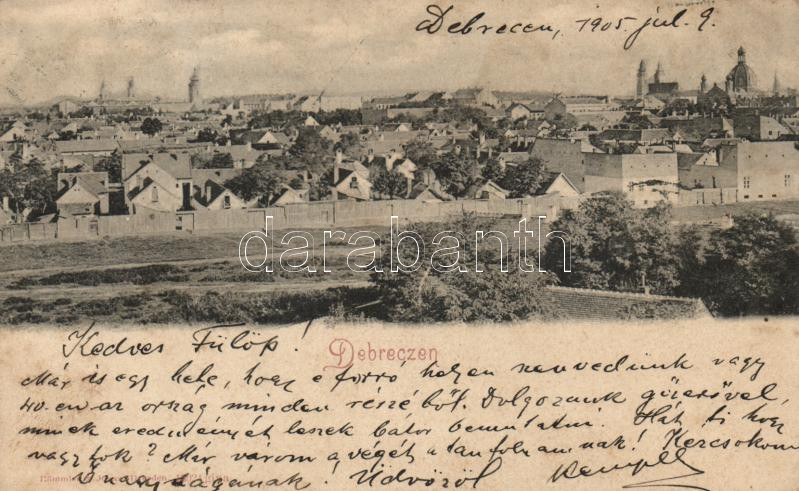 Debreczen, 1905. júl. 9.
darabanth
Kedves Fülöp!
Debreczen
Már is egy hete, hogy e forró helyen szenvedünk vagy
40-en az ország minden részéből. Dolgozunk gőzerővel,
minek eredményét leszek bátor bemutatni. Hát ti hogy
vagytok? Már várom a végét a tanfolyamnak!
Üdvözöl